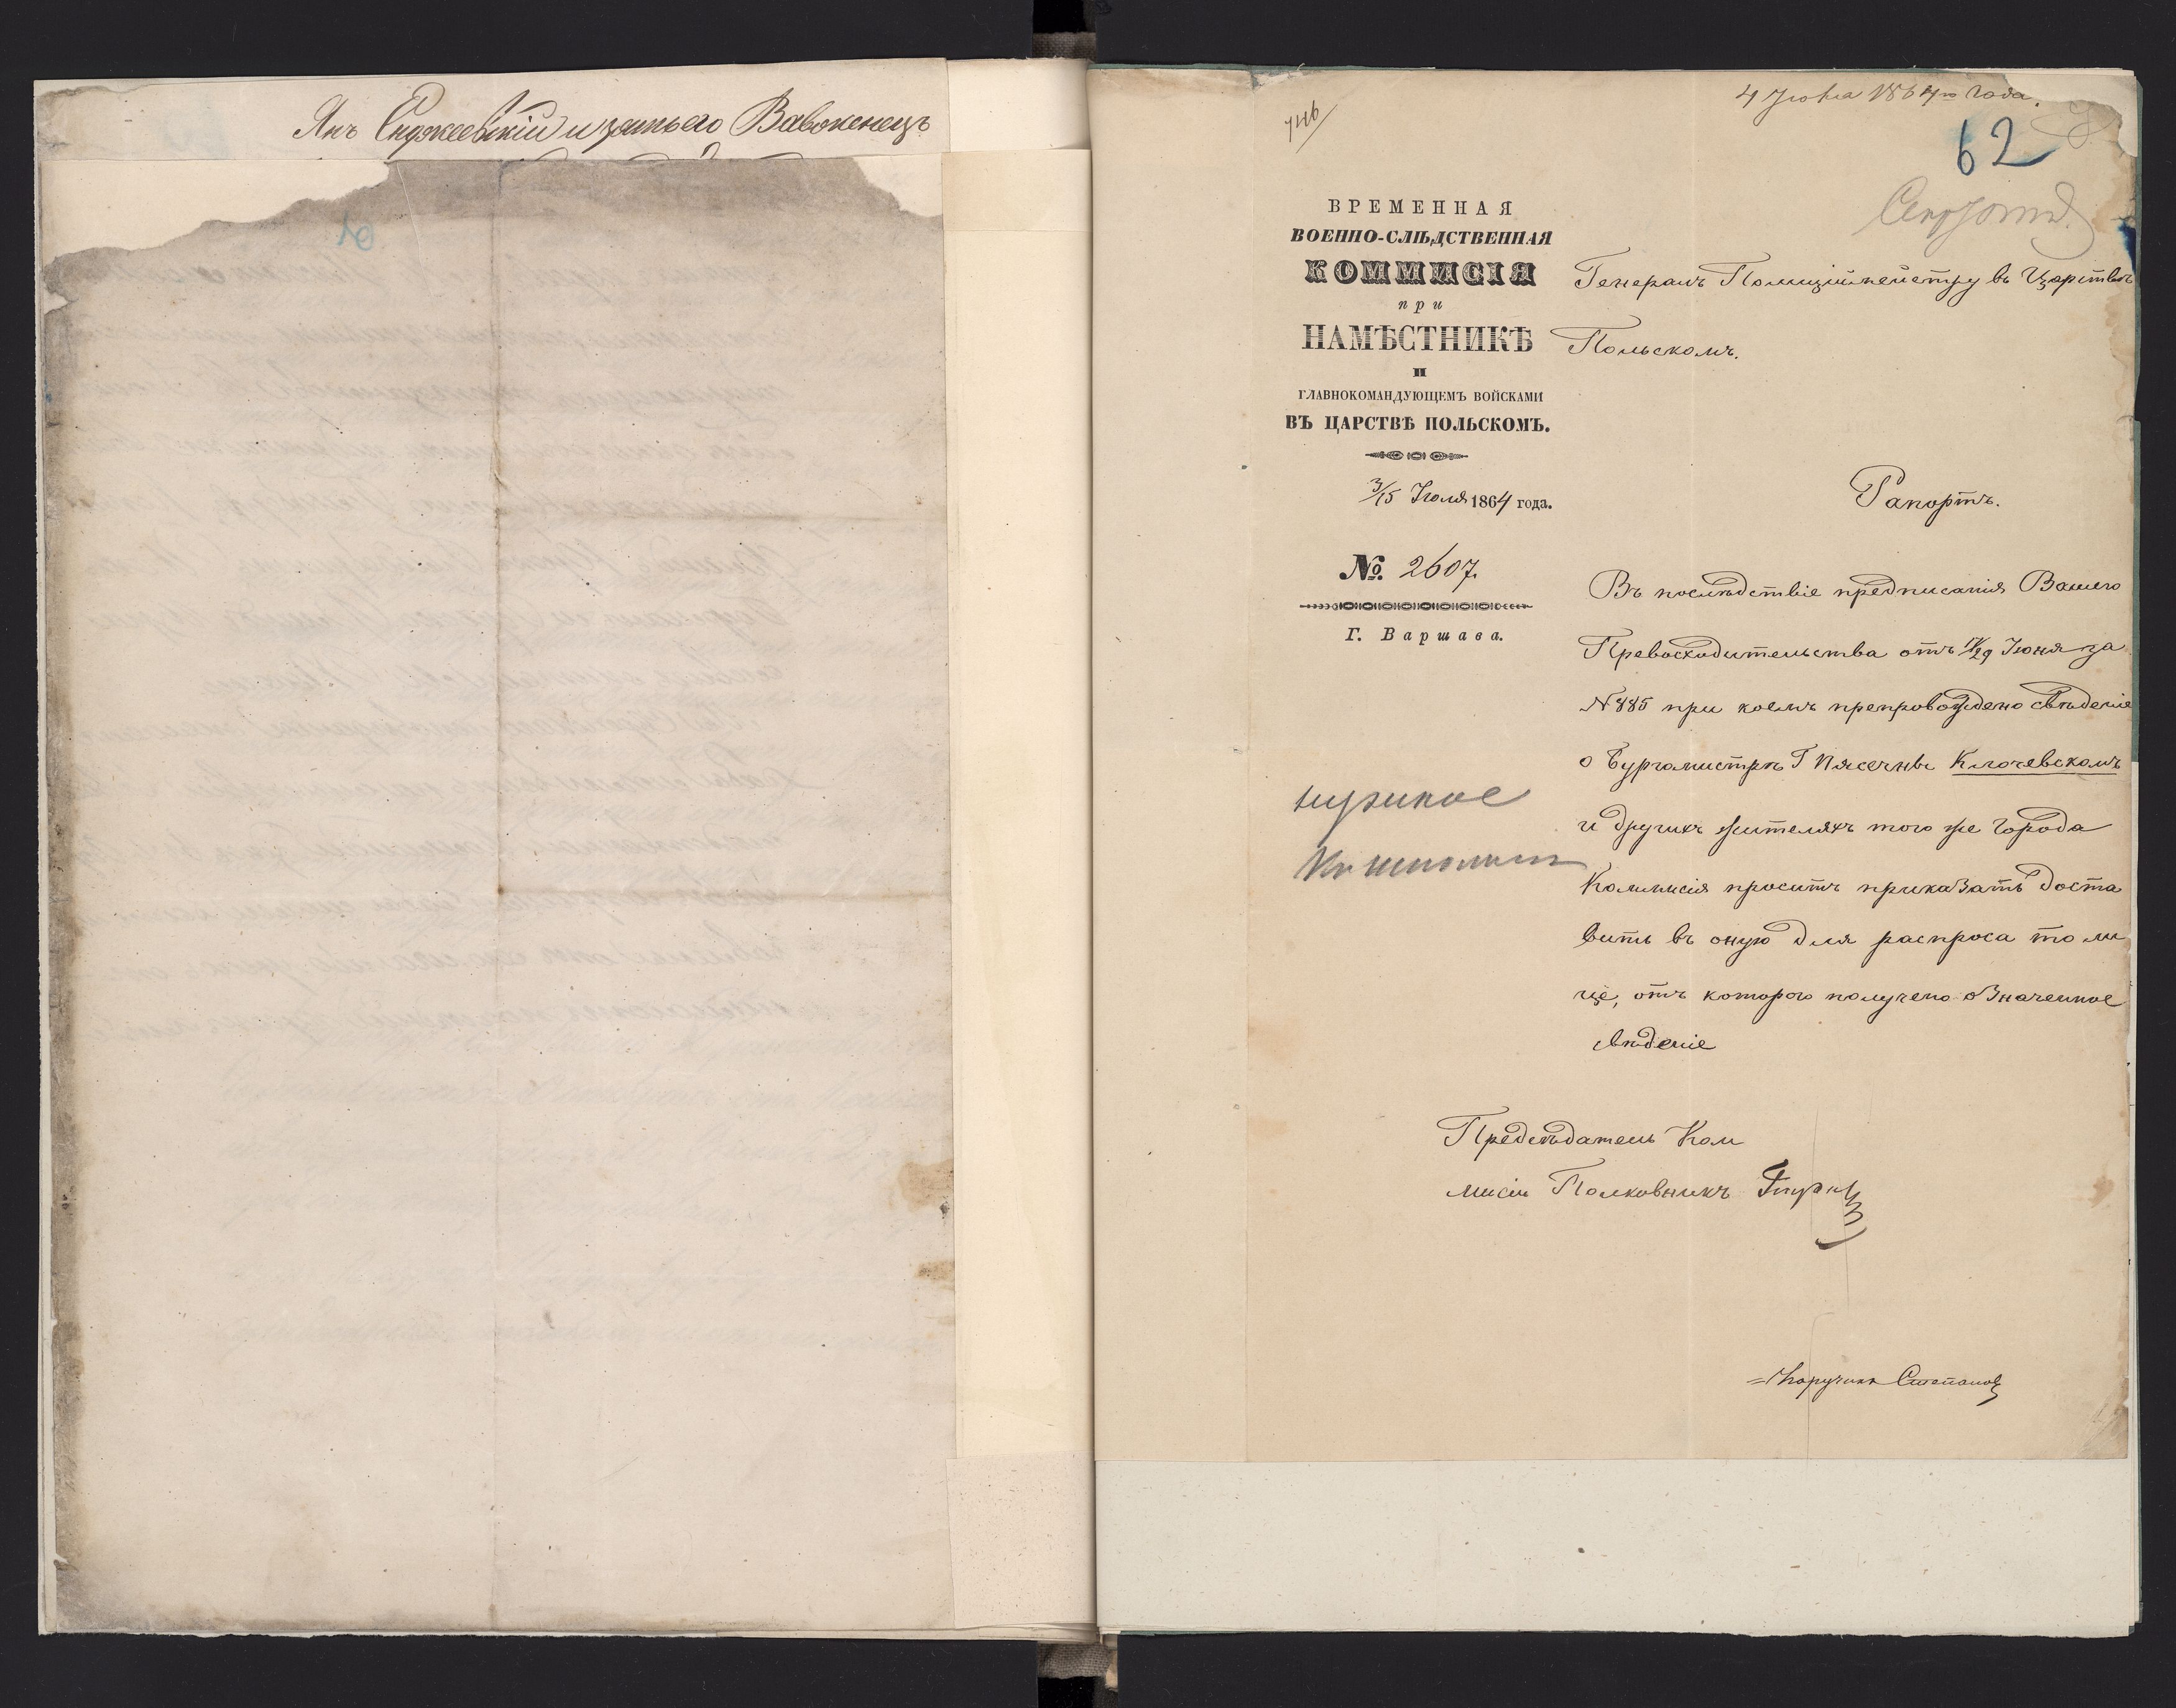 Янъ Енджеевскій и зятьего Вавокенецъ
746
4 Іюля 1864го года.
62
ВРЕМЕННАЯ
ВОЕННО-СЛѢДСТВЕННАЯ
КОММИСІЯ
при
НАМѢСТНИКѢ
И
ГЛАВНОКОМАНДУЮЩЕМЪ ВОЙСКАМИ
ВЪ ЦАРСТВѢ ПОЛЬСКОМЪ.
3/15 Іюля 1864 года.
№. 2607.
Г. Варшава.
Генералъ Полиціймейстру въ Царствѣ
Польскомъ.
Рапортъ.
Въ послѣдствіе предписанія Вашего
Превосходительства отъ 17/29 Іюня за
№ 885 при коемъ препровождено свѣденіе
о Бургомистрѣ Г Пясечнѣ Клочевскомъ
и другихъ жителяхъ того же города
Коммисія проситъ приказать доста
вить въ оную для распроса то ли
це, отъ котораго получено означенное
свѣденіе
Предсѣдатель Ком
мисіи Полковникъ
Поручикъ Степановъ